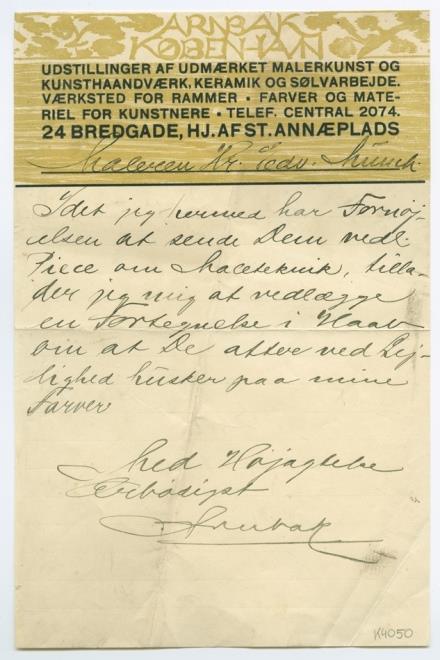 ARNBAK
KØBENHAVN
UDSTILLINGER AF UDMÆRKET MALERKUNST OG
KUNSTHAANDVÆRK, KERAMIK OG SØLVARBEJDE.
VÆRKSTED FOR RAMMER • FARVER OG MATE-
RIEL FOR KUNSTNERE • TELEF. CENTRAL 2074.
24 BREDGADE, HJ. AF ST. ANNÆPLADS
Maleren Hr. Edv. Munch.
Idet jeg hermed har Fornøj-
elsen at sende Dem vedl.
Piece om Maleteknik, tilla-
der jeg mig at vedlægge
en Fortegnelse i Haab
om at De atter ved Lej-
lighed husker paa mine
Farver
Med Højagtelse
Ærbødigst
Arnbak
K4050